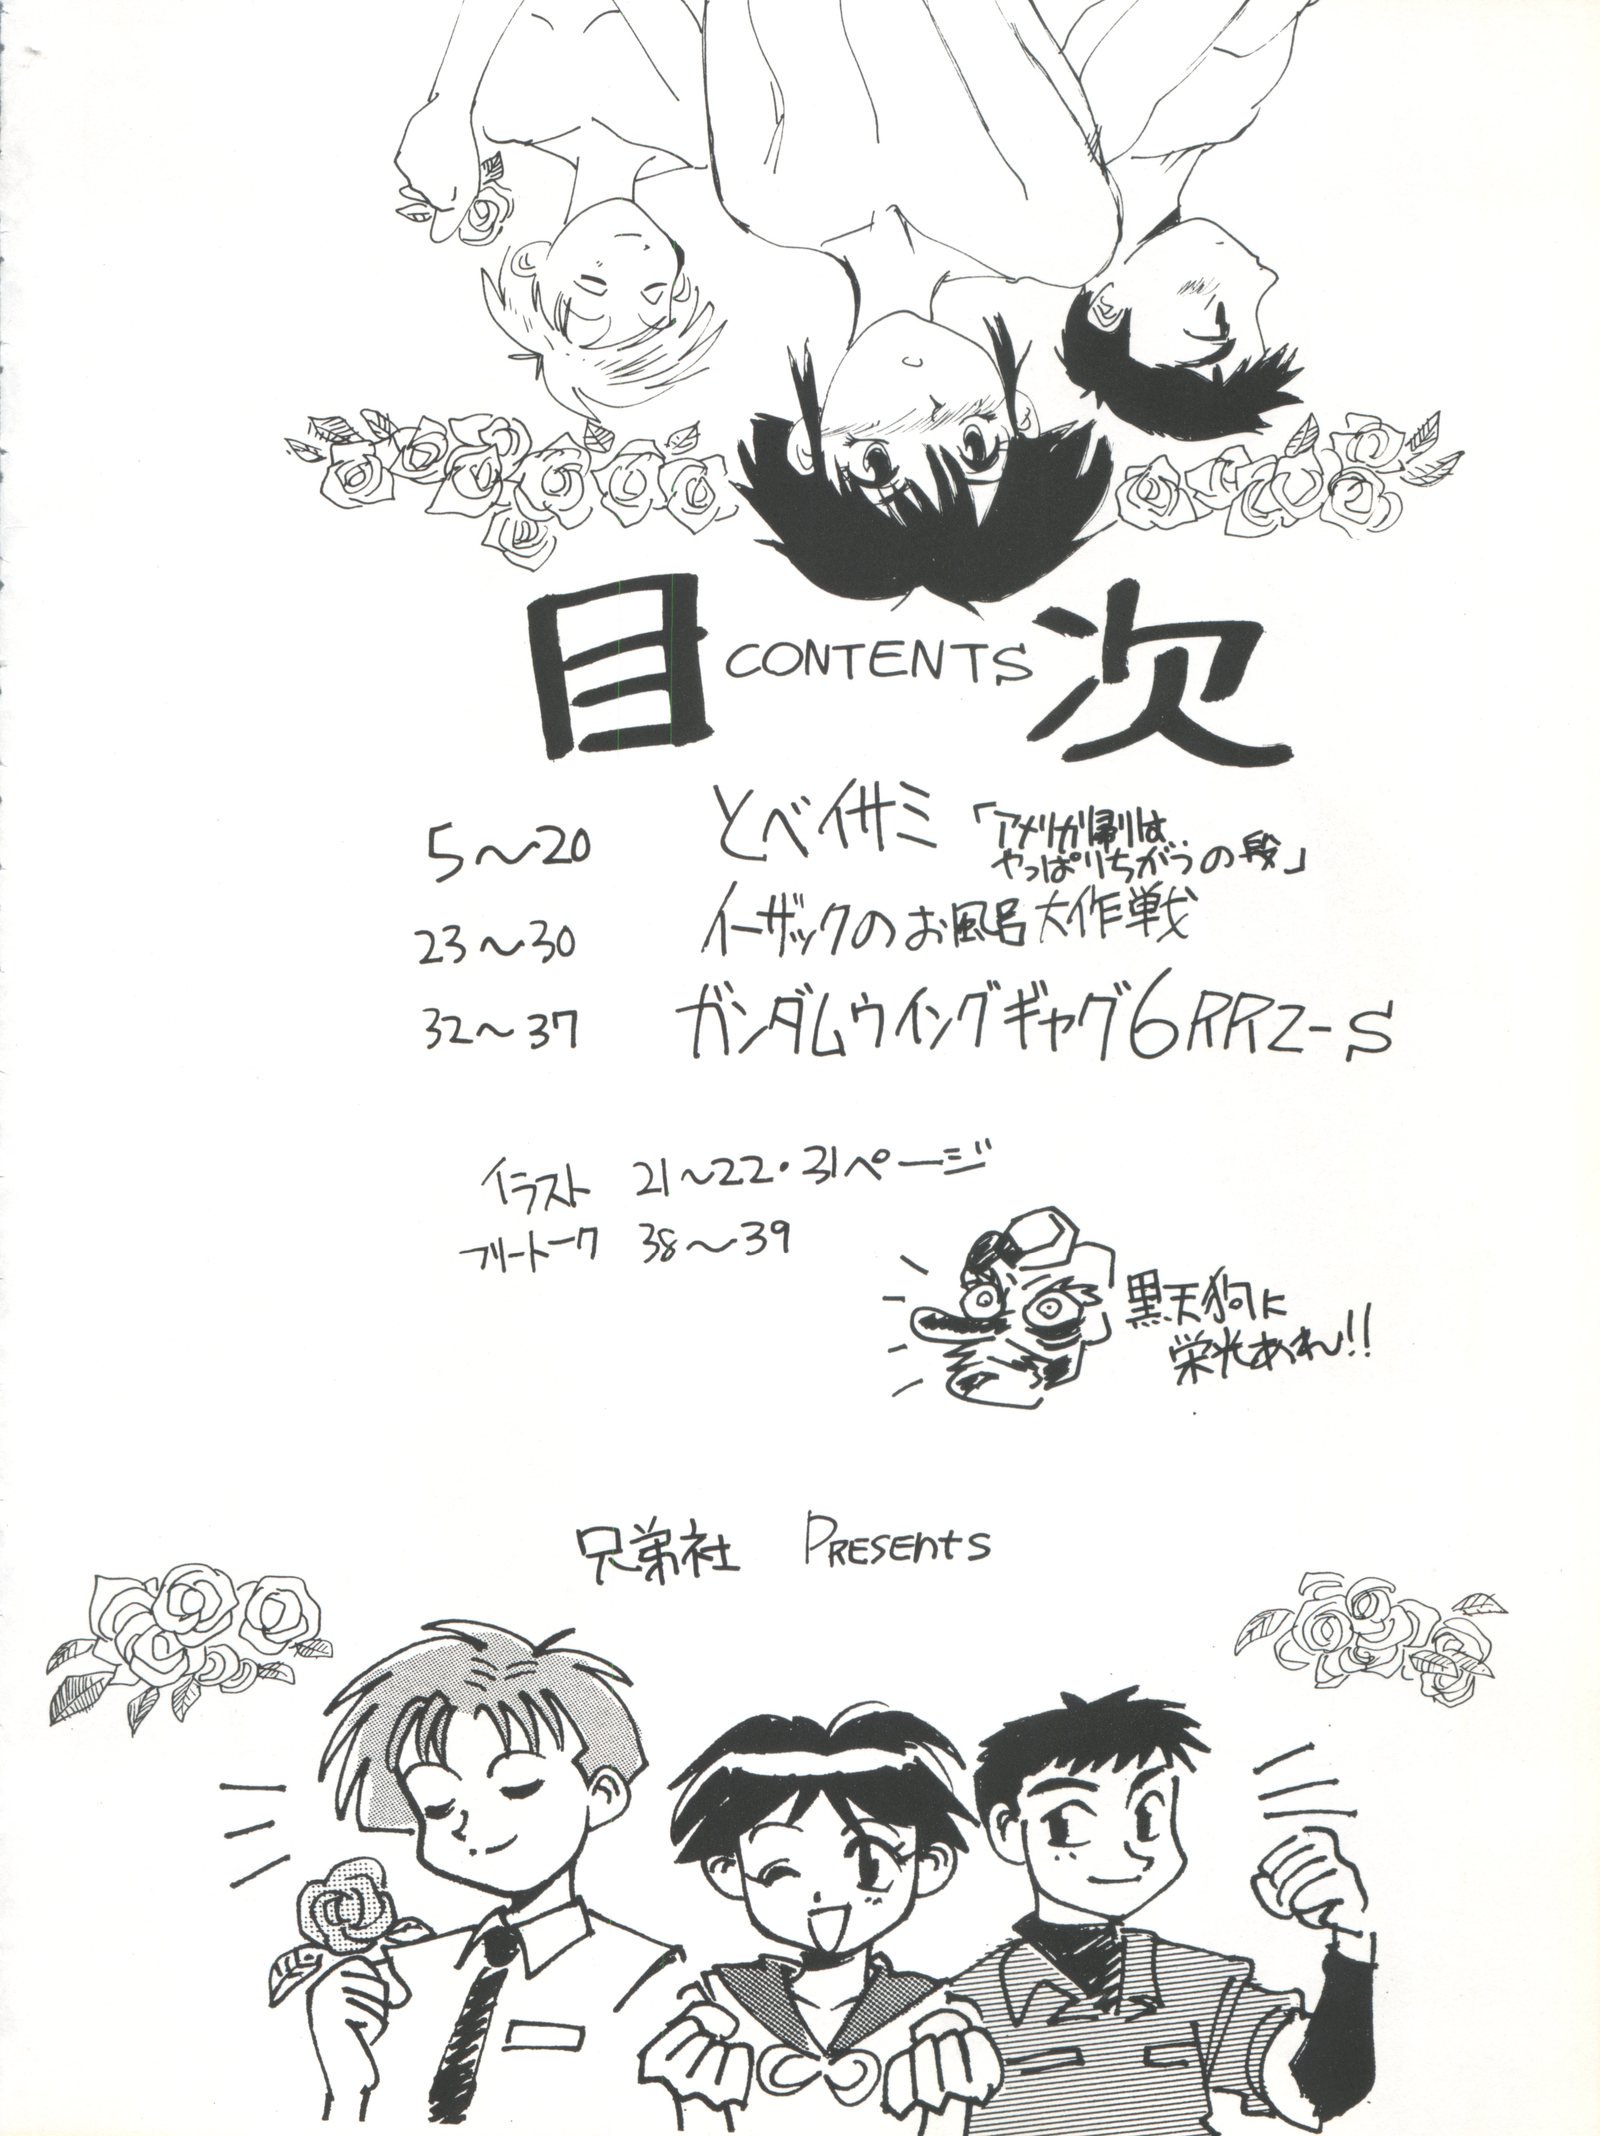 目 CONTENTS 次
5〜20 とべイサミ 「アメリカ帰りは
やっぱりちがうの段」
23〜30 イーザックのお風呂大作戦
32〜37 ガンダムウイングギャグ6RRZ-S
イラスト 21〜22・31ページ
フリートーク 38〜39
黒天狗に
栄光あれ!!
兄弟社 PRESENTS